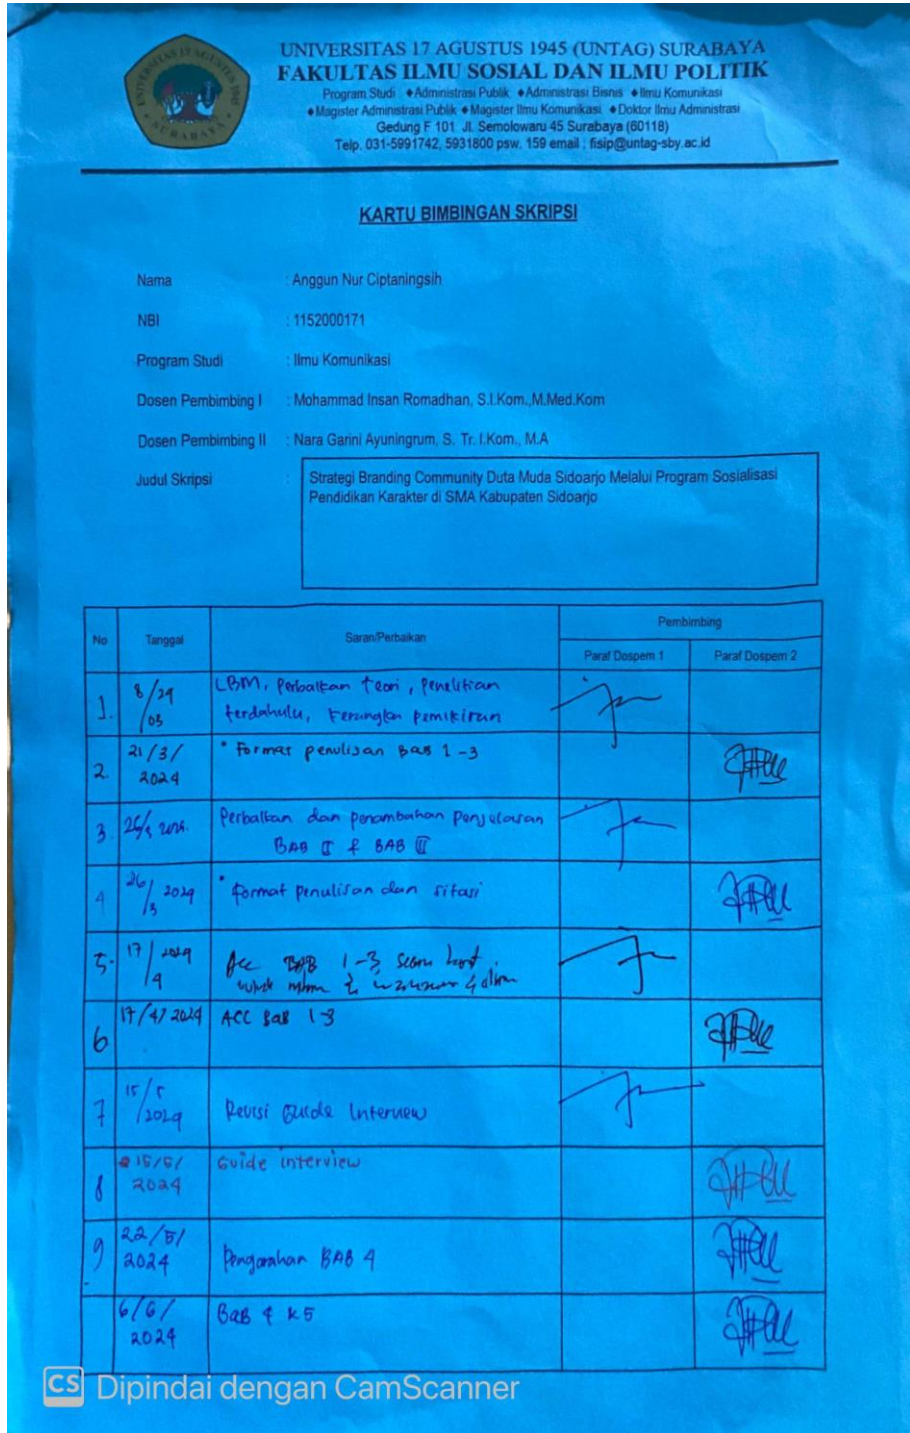 UNIVERSITAS 17 AGUSTUS 1945 (UNTAG) SURABAYA
FAKULTAS ILMU SOSIAL DAN ILMU POLITIK
Program Studi ◆Administrasi Publik ◆Administrasi Bisnis ◆Ilmu Komunikasi
◆Magister Administrasi Publik ◆Magister Ilmu Komunikasi ◆Doktor Ilmu Administrasi
Gedung F 101 Jl. Semolowaru 45 Surabaya (60118)
Telp. 031-5991742, 5931800 psw. 159 email ; fisip@untag-sby.ac.id
KARTU BIMBINGAN SKRIPSI
Nama : Anggun Nur Ciptaningsih
NBI : 1152000171
Program Studi : Ilmu Komunikasi
Dosen Pembimbing I : Mohammad Insan Romadhan, S.I.Kom.,M.Med.Kom
Dosen Pembimbing II : Nara Garini Ayuningrum, S. Tr. I.Kom., M.A
Judul Skripsi : Strategi Branding Community Duta Muda Sidoarjo Melalui Program Sosialisasi
Pendidikan Karakter di SMA Kabupaten Sidoarjo
No Tanggal Saran/Perbaikan Pembimbing
Paraf Dospem 1 Paraf Dospem 2
1. 8/24 LBM, Perbaikan teori, Penelitian
/03 terdahulu, kerangka pemikiran
2. 21/3/ • Format penulisan Bab 1-3
2024
3. Perbaikan dan penambahan penjelasan
BAB II & BAB III
4 26/ 2024 • Format penulisan dan sitasi
3
5. 17/ 2024 Acc BAB 1-3
4
6 17/4/2024 ACC Bab 1-3
7 15/5 Revisi Guide Interview
/2024
8 15/5/ Guide interview
2024
9 22/5/ Pengarahan BAB 4
2024
6/6/ Bab 4 & 5
2024
CS Dipindai dengan CamScanner